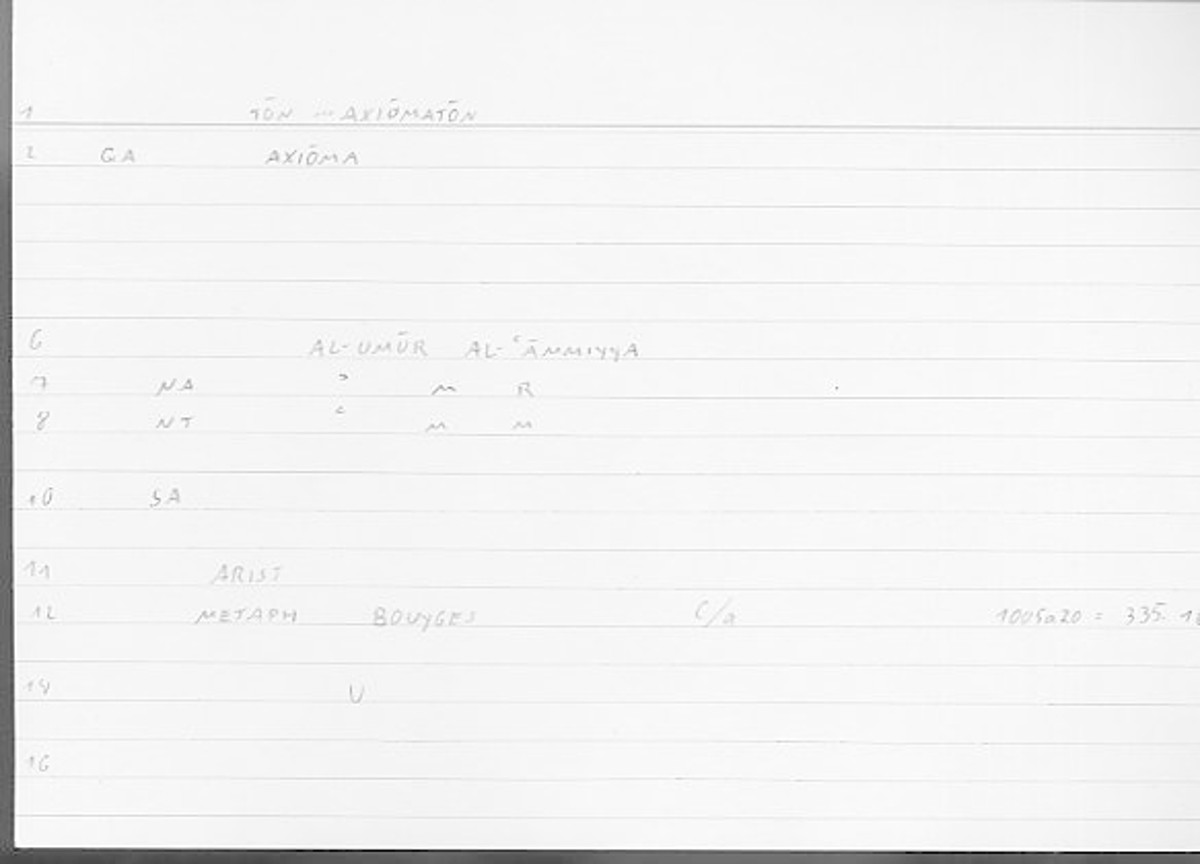 1 TŌN ... AXIŌMATŌN
2 GA AXIŌMA
6 AL-UMŪR AL-ʿĀMMIYYA
7 NA ʾ M R
8 NT ʿ M M
10 SA
11 ARIST
12 METAPH BOUYGES C/a 1005a20 = 335.
14 U
16